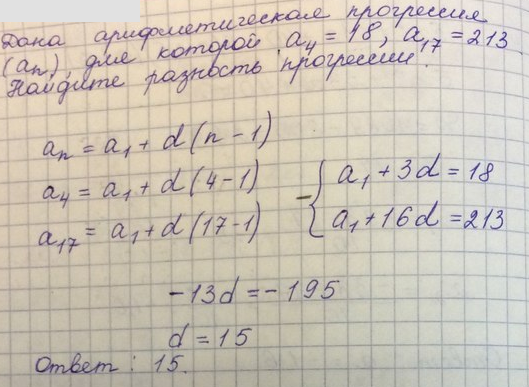 Дана арифметическая прогрессия
(aₙ), для которой a₄ = 18, a₁₇ = 213
Найдите разность прогрессии.
aₙ = a₁ + d(n - 1)
a₄ = a₁ + d(4-1)
a₁₇ = a₁ + d(17-1)
- { a₁ + 3d = 18
a₁ + 16d = 213
-13d = -195
d = 15
Ответ: 15.